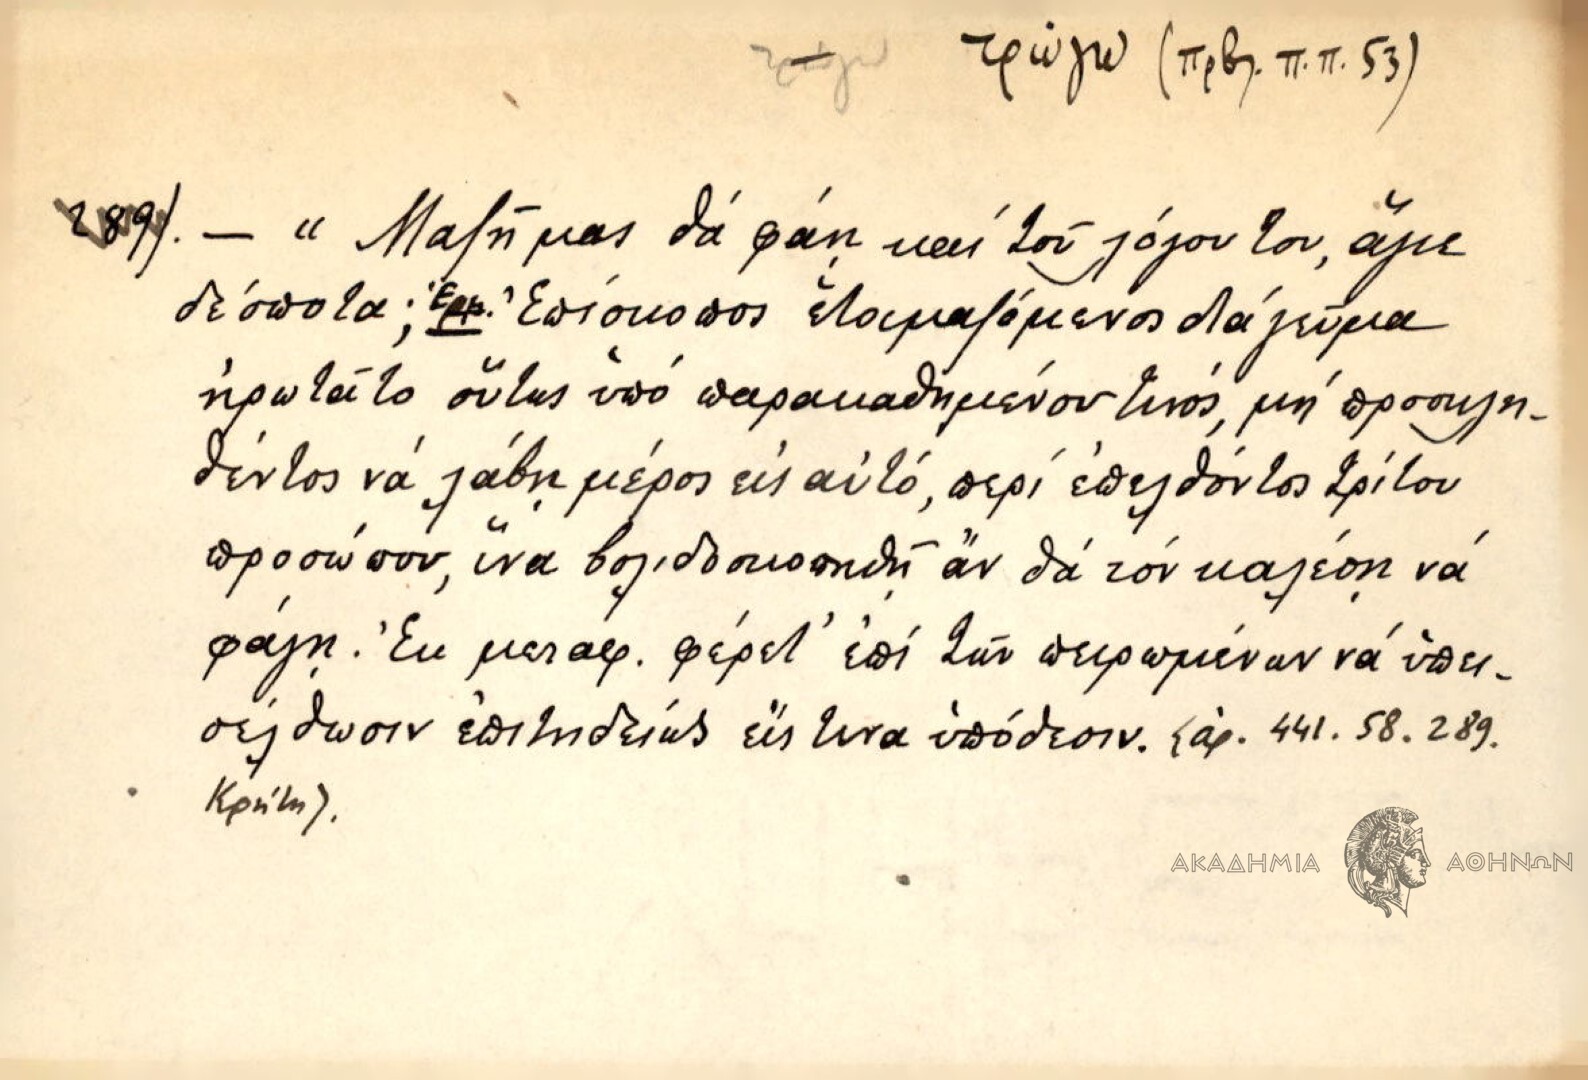 τρώγω τρώγω (πρβλ. π.π. 53)
289). — " Μαζῆ μας θά φάῃ καί τοῦ λόγου του, ἅγιε
δέσποτα; Ἑρμ. Ἐπίσκοπος ἑτοιμαζόμενος διά γεῦμα
ἠρωτᾶτο οὕτως ὑπό παρακαθημένου τινός, μή προσκλη-
θέντος νά λάβῃ μέρος εἰς αὐτό, περί ἐπελθόντος τρίτου
προσώπου, ἵνα βολιδοσκοπηθῇ ἄν θά τόν καλέσῃ νά
φάγῃ. Ἐκ μεταφ. φέρετ' ἐπί τῶν πειρωμένων νά ὑπει-
σέλθωσιν ἐπιτηδείως εἴς τινα ὑπόθεσιν. (ἀρ. 441. 58. 289.
Κρήτη).
ΑΚΑΔΗΜΙΑ ΑΘΗΝΩΝ